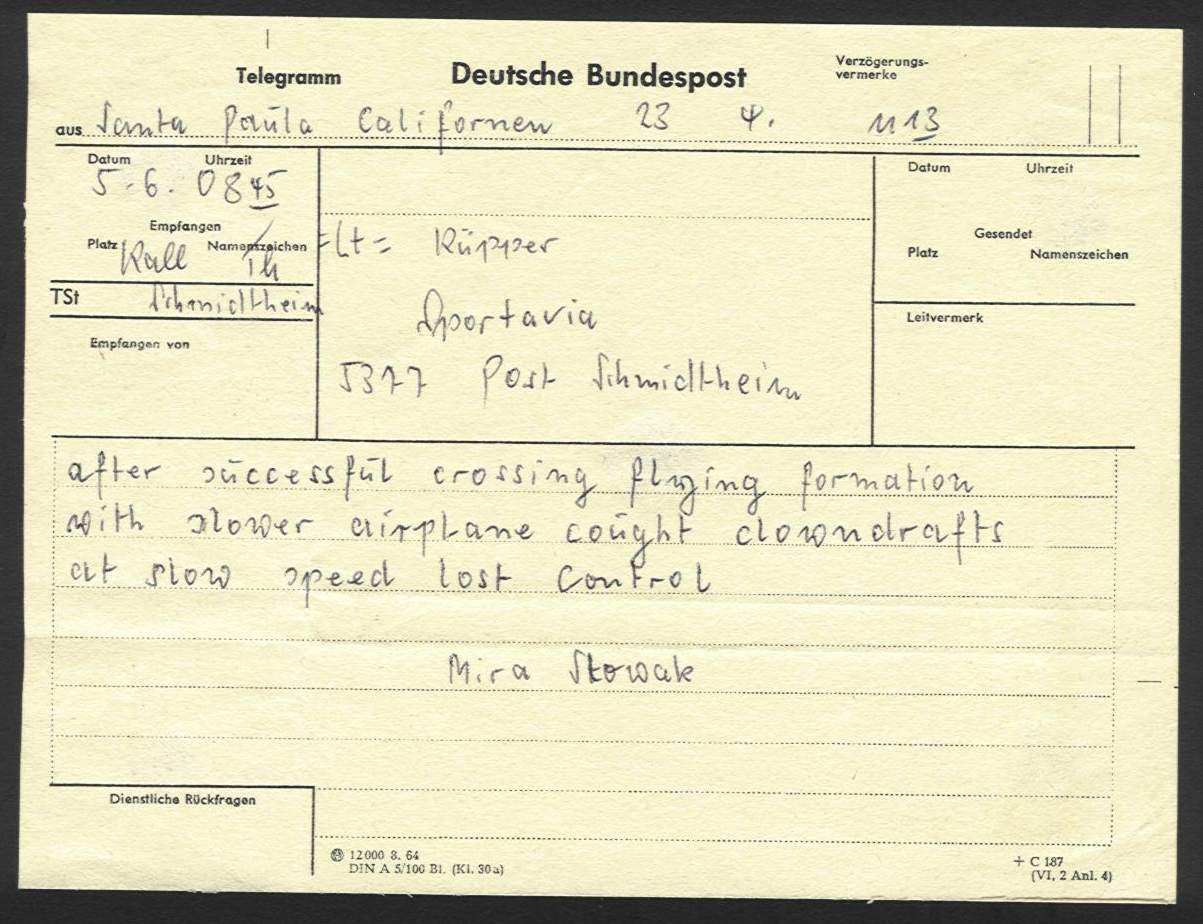 Telegramm Deutsche Bundespost Verzögerungs-
vermerke
aus Santa Paula Californen 23 4. 1113
Datum Uhrzeit
5.6. 0845
Empfangen
Platz Kall Namenszeichen Th
TSt Schmidtheim
Empfangen von
=Lt= Rüpper
Sportavia
5377 Post Schmidtheim
Datum Uhrzeit
Gesendet
Platz Namenszeichen
Leitvermerk
after successful crossing flying formation
with slower airplane cought downdrafts
at slow speed lost control
Mira Slowak
Dienstliche Rückfragen
12000 8. 64
DIN A 5/100 Bl. (Kl. 30a)
+ C 187
(VI, 2 Anl. 4)